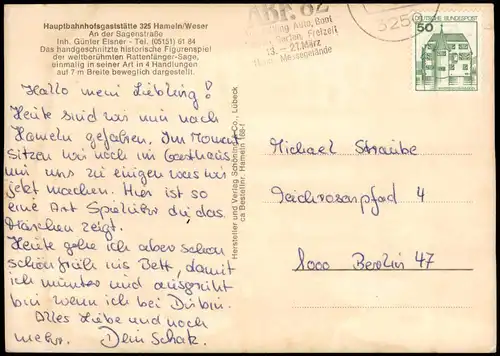 Hauptbahnhofsgaststätte 325 Hameln/Weser
An der Sagenstraße
Inh. Günter Eisner - Tel. (05151) 61 84
Das handgeschnitzte historische Figurenspiel
der weltberühmten Rattenfänger-Sage,
einmalig in seiner Art in 4 Handlungen
auf 7 m Breite beweglich dargestellt.
Hallo mein Liebling!
Heute sind wir mur nach
Hameln gefahren. Im Moment
sitzen wir noch im Gasthaus
um uns zu einigen was wir
jetzt machen. Hier ist so
eine Art Spieluhr die das
Märchen zeigt.
Heute gehe ich aber schon
schön früh ins Bett, damit
ich munter und ausgeruht
bin wenn ich bei Dir bin.
Alles Liebe und noch
mehr. Dein Schatz.
Hersteller und Verlag Schöning & Co., Lübeck
Bestellnr. Hameln 168-f
ABF. 82
Auto, Boot
Garten, Freizeit
13. - 21. März
Messegelände
325
DEUTSCHE BUNDESPOST
50
Michael Straube
Teichrosenpfad 4
1000 Berlin 47